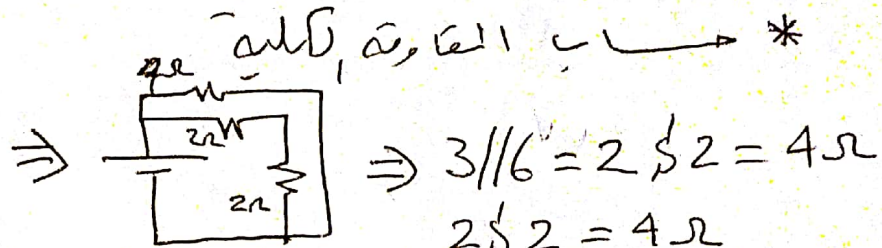 * حساب المقاومة الكلية
4Ω
2Ω
2Ω
⇒ ⇒ 3//6 = 2 S 2 = 4Ω
2 S 2 = 4Ω